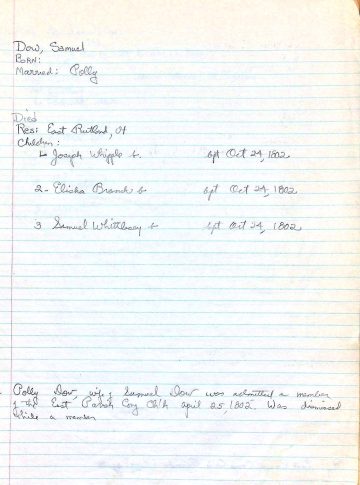 Dow, Samuel
Born:
Married: Polly
Died
Res: East Rutland, Vt
Children:
1. Joseph Whipple b. bpt Oct 24, 1802
2- Elisha Branch b bpt Oct 24, 1802
3 Samuel Whittlesey b bpt Oct 24, 1802
Polly Dow, wife of Samuel Dow was admitted a member
of the East Parish Cong Ch'h April 25, 1802. Was dismissed
while a member